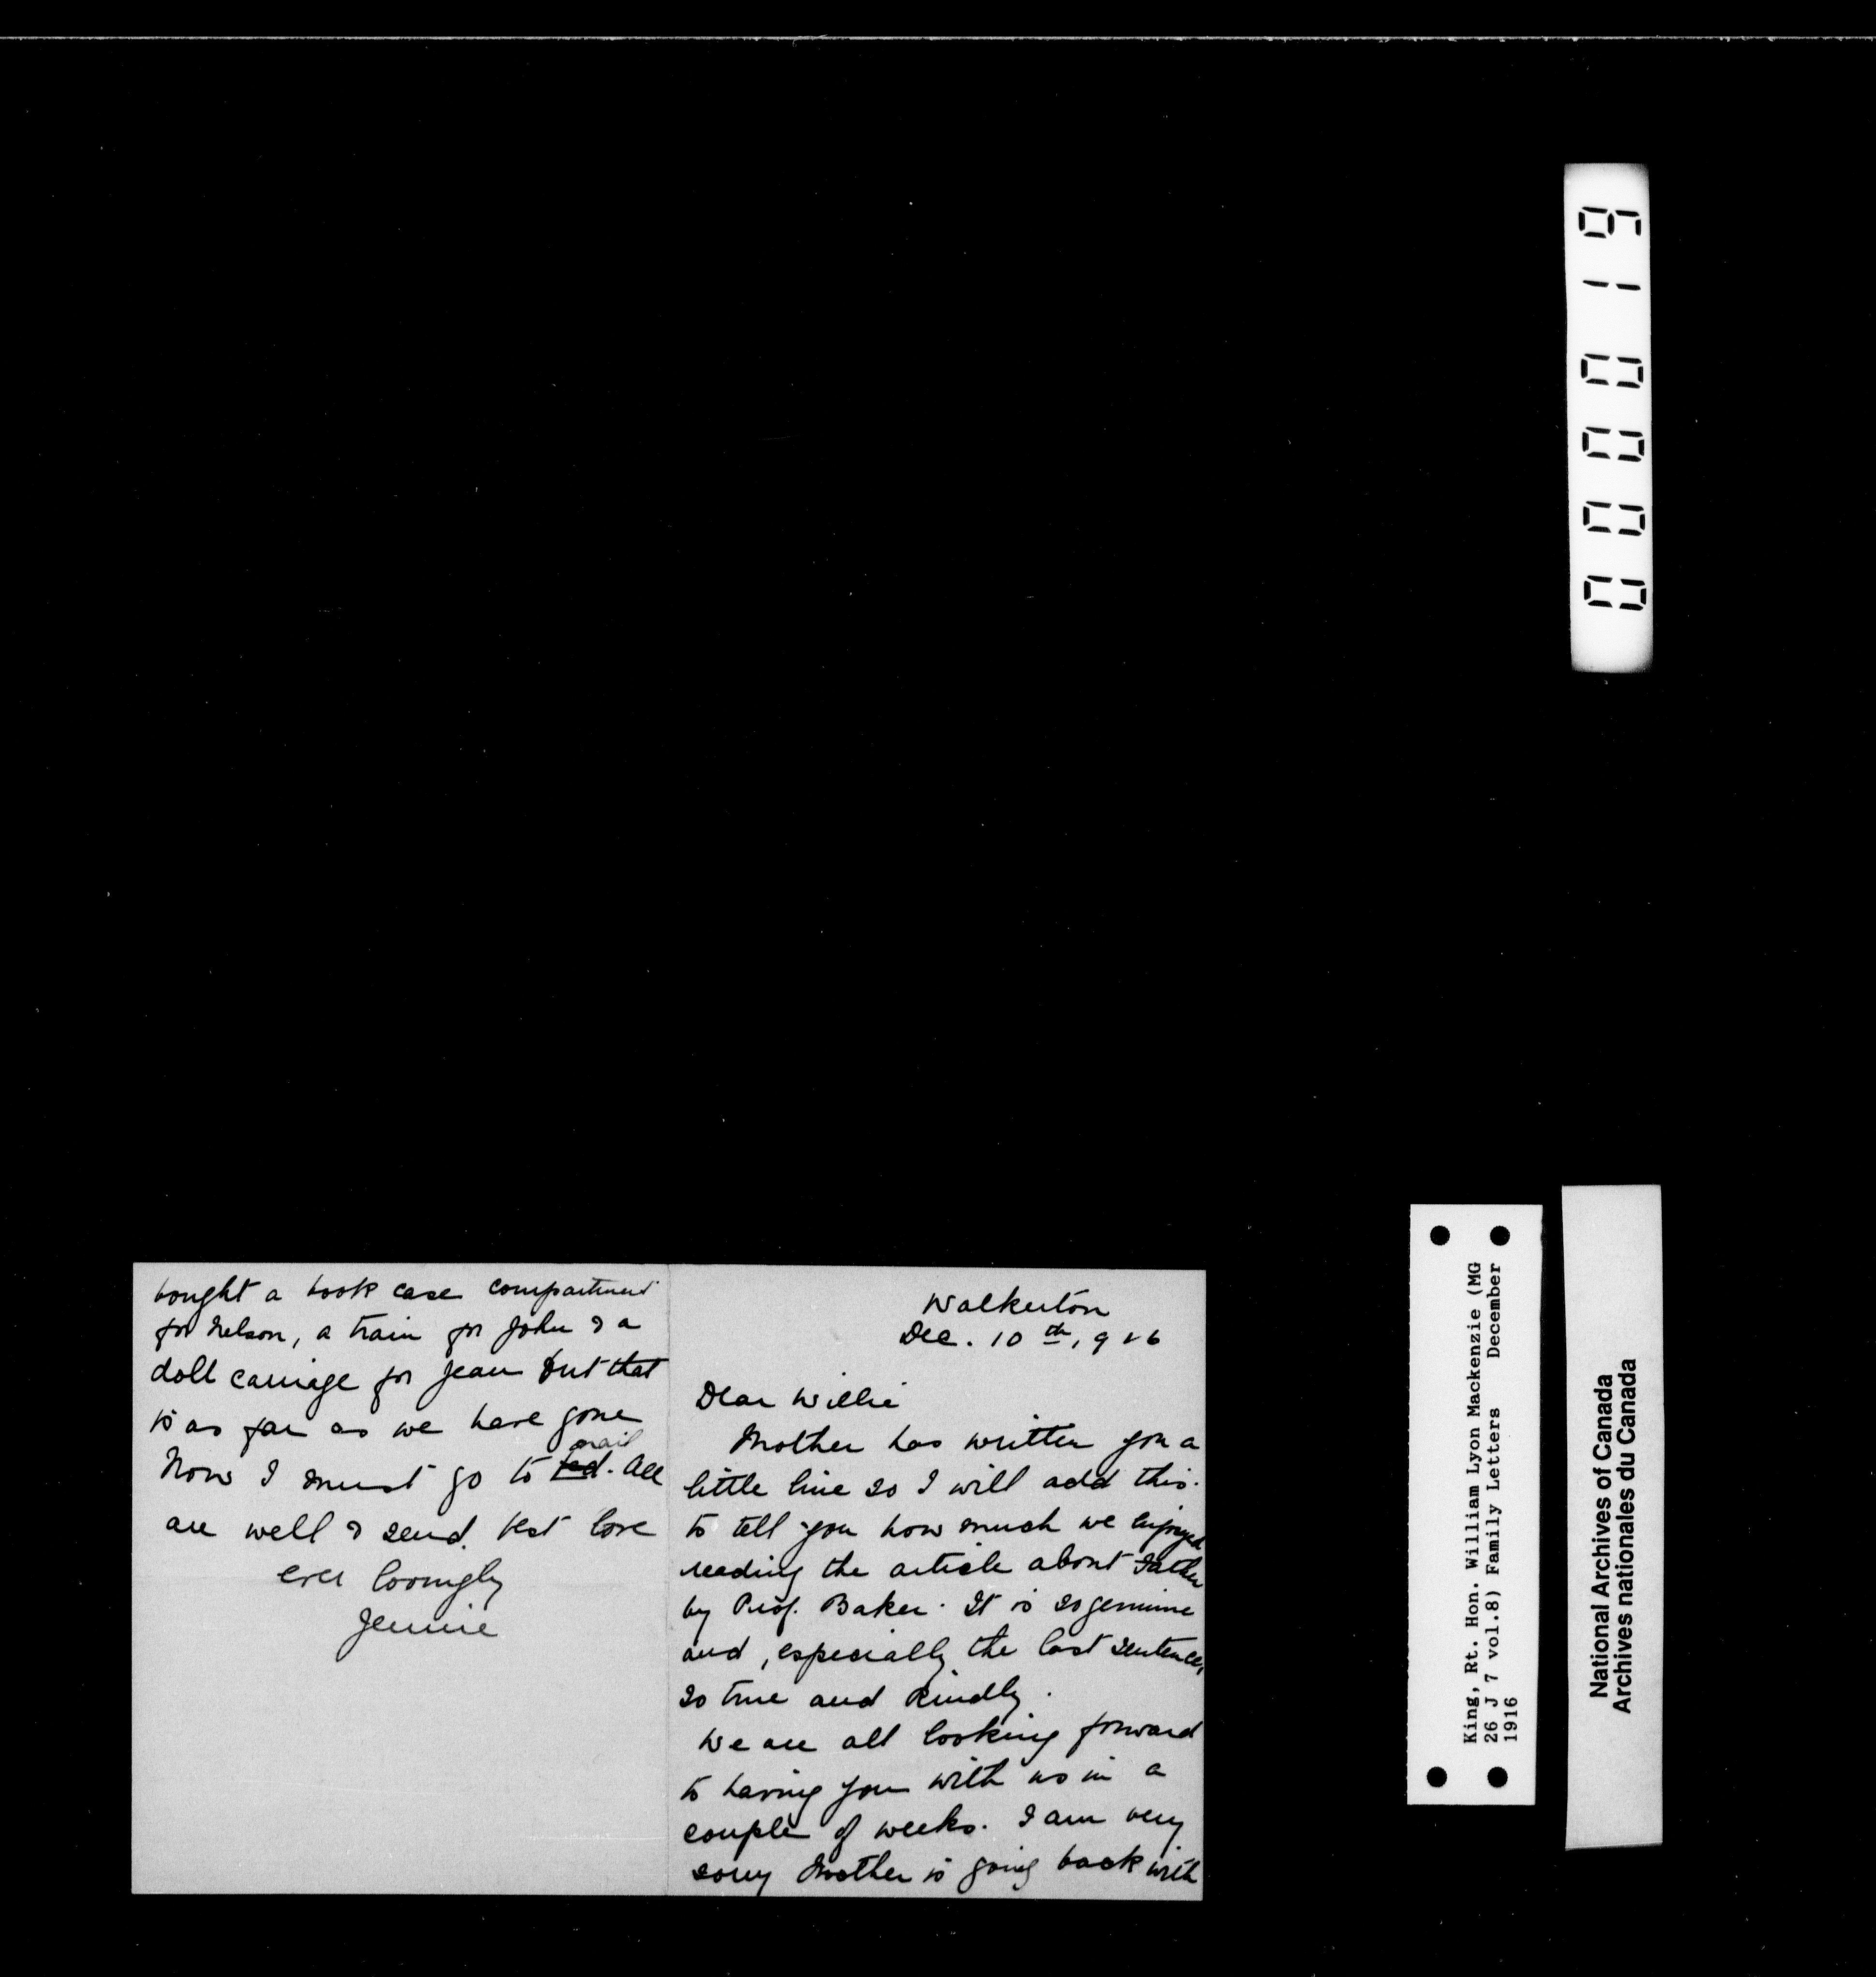 Walkerton
Dec. 10th, 916
Dear Willie
Mother has written you a
little line so I will add this.
to tell you how much we enjoyed
reading the article about Father
by Prof. Baker. It is so genuine
and, especially the last sentence,
so true and kindly.
We are all looking forward
to having you with us in a
couple of weeks. I am very
sorry Mother is going back with
bought a book case compartment
for Nelson, a train for John & a
doll carriage for Jean but that
is as far as we have gone
mail
Now I must go to bed. All
are well & send best love
ever lovingly
Jennie
000019
King, Rt. Hon. William Lyon Mackenzie (MG
26 J 7 vol.8) Family Letters December
1916
National Archives of Canada
Archives nationales du Canada